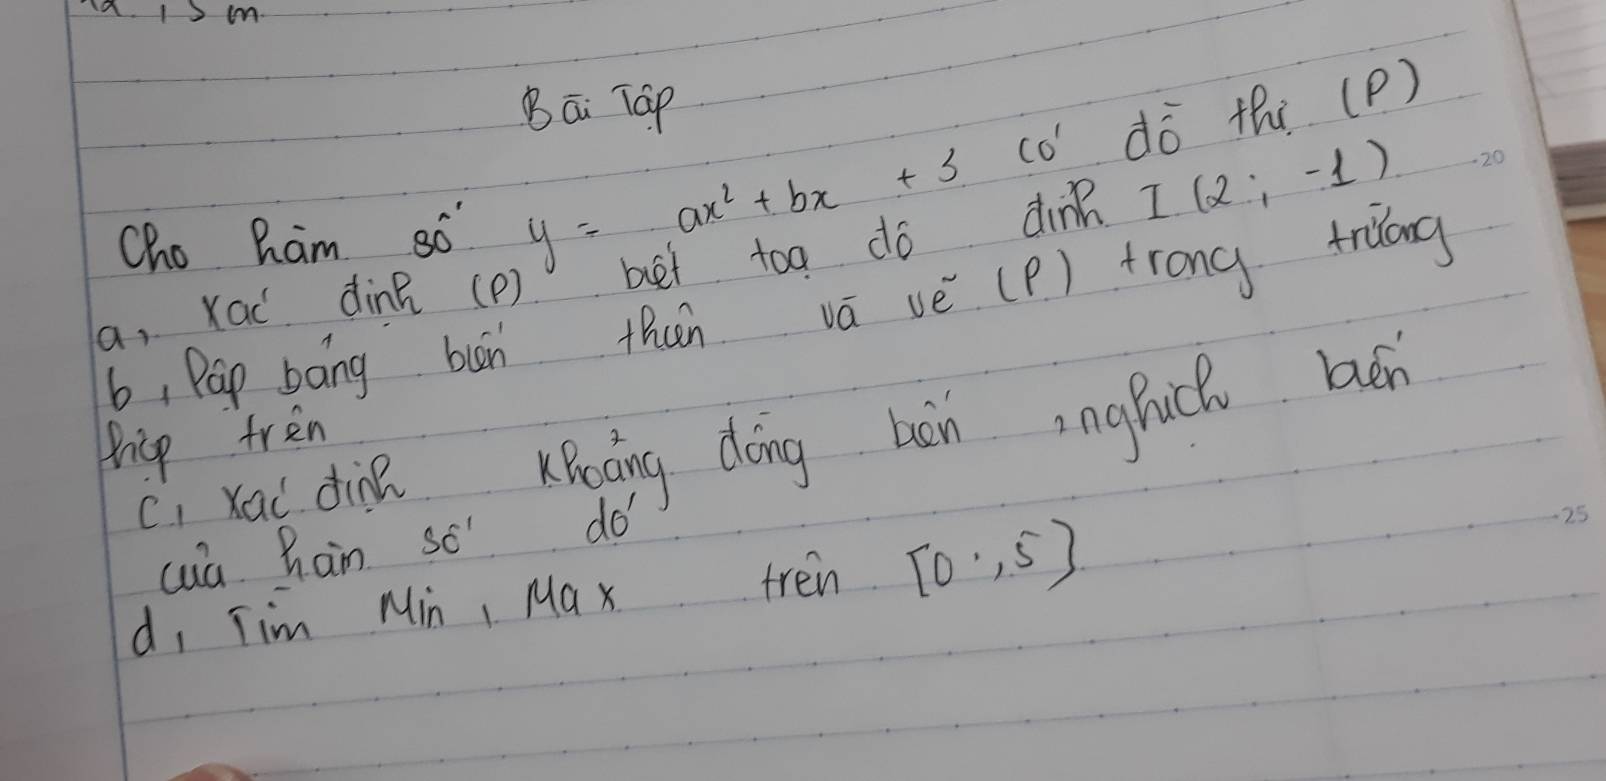 Bài Tập
Cho hàm số y = ax² + bx + 3 có đồ thị (P)
a, Xác định (P) biết toạ độ đỉnh I (2; -1)
b, lập bảng biến thiên và vẽ (P) trong trường
hợp trên
c, Xác định khoảng đồng biến, nghịch biến
của hàm số đó
d, Tìm Min, Max trên [0; 5]
20
25